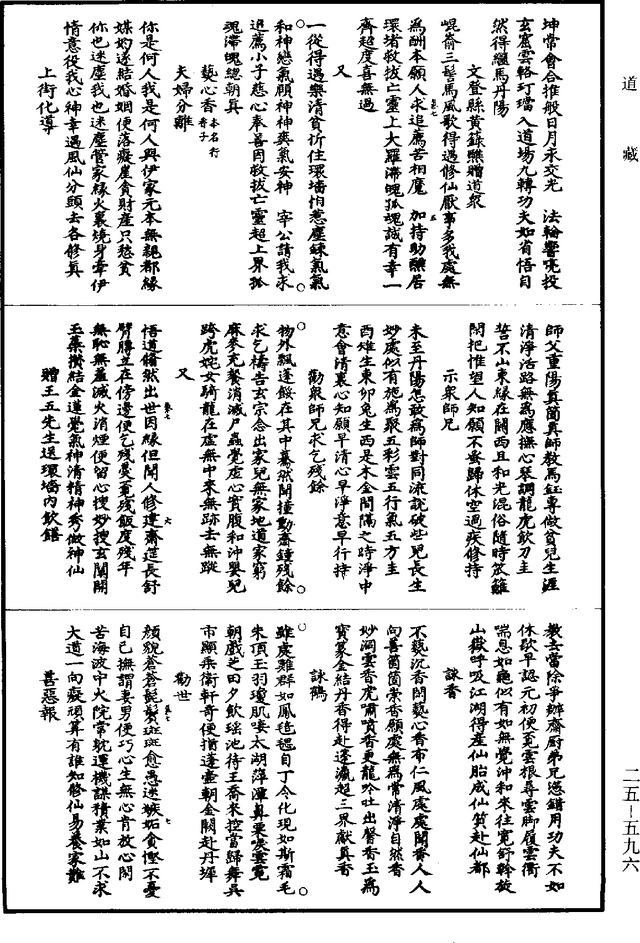 道藏
坤常會合推般日月承交光　法輪響亮投
玄窟雲輅玎璫入道場九轉功夫如省悟自
然得繼馬丹陽
文登縣黃籙醮贈道衆
崐崳三髻馬風歌得遇修仙厭事多我處無
爲酬本願人求追薦苦相魔　加持助醮居
環堵救拔亡靈上大羅滯魄孤魂誠有幸一
齊超度喜無過
又
一從得遇樂清貧祈住環墻怕惹塵鍊氣氣
和神戀氣頤神神爽氣安神　宰公請我求
追薦小子慈心奉善因救拔亡靈超上界孤
魂滯魄總朝眞
藝心香本名行香子
夫婦分離
你是何人我是何人與伊家元本無親都緣
媒妁遂結婚姻便落癡崖貪財產只愁貧
你也迷塵我也迷塵管家緣火裏燒身牽伊
情意役我心神幸遇風仙分頭去各修眞
上街化導
師父重陽眞箇眞師教馬鈺專做貧兒生涯
清淨活路無爲應撫心琴調龍虎飲刀圭
誓不山東緣在關西且和光混俗隨時笊籬
閑把惟望人知願不要歸休空過疾修持
示衆師兄
未至丹陽怎敢爲師對同流說破些兒長生
妙處似有施爲聚五彩雲五行氣五方圭
酉雉生東卯兔生西是木金間隔之時淨中
意會清裏心知願早清心早淨意早行持
勸衆師兄求乞殘餘
物外飄蓬餒在其中驀然聞撞動齋鐘殘餘
求乞禱告玄宗念出家兒無家地道家窮
麻麥充餐消滅尸蟲覺虛心實腹和沖嬰兒
跨虎姹女騎龍在虛無中來無跡去無蹤
又
悟道翛然出世因緣但聞人修建齋筵長舒
臂膊立在傍邊便乞殘羹覓殘飯度殘年
無恥無羞滅火消煙便留心搜妙搜玄闐闐
玉蘂攢結金蓮覺氣神清精神秀做神仙
贈王五先生送環墻內飲饍
教去當除爭辦齋廚弟兄恁錯用功夫不如
休歇早認元初便覓雲根尋雲脚履雲衢
喘息如龜似有如無覺沖和來往寬舒斡旋
山嶽呼吸江湖得產仙胎成仙質赴仙都
詠香
不爇沉香閑藝心香布仁風處處聞香人人
向善箇箇崇香願處無爲常清淨自然香
妙洞雲香虎嘯噴香更龍吟吐出馨香玉爲
寶篆金結丹香得赴蓬瀛超三界獻眞香
詠鶴
雖處雞群如鳳毸毸自丁令化現如斯霜毛
朱頂玉羽瓊肌唼太湖萍潭算粟唳雲霓
朝戲芝田夕飲瑤池待王喬來控當歸舞吳
市顯乘衛軒奇便指蓬壺朝金闕赴丹墀
勸世
顏貌蒼蒼髭鬢斑斑愈愚迷嫉妬貪慳不憂
自己撫謂妻男便巧心生無心肯放心閑
苦海波中火院常躭運機謀積業如山不求
大道一向癡頑算有誰知修仙易養家難
善惡報
二五－五九六